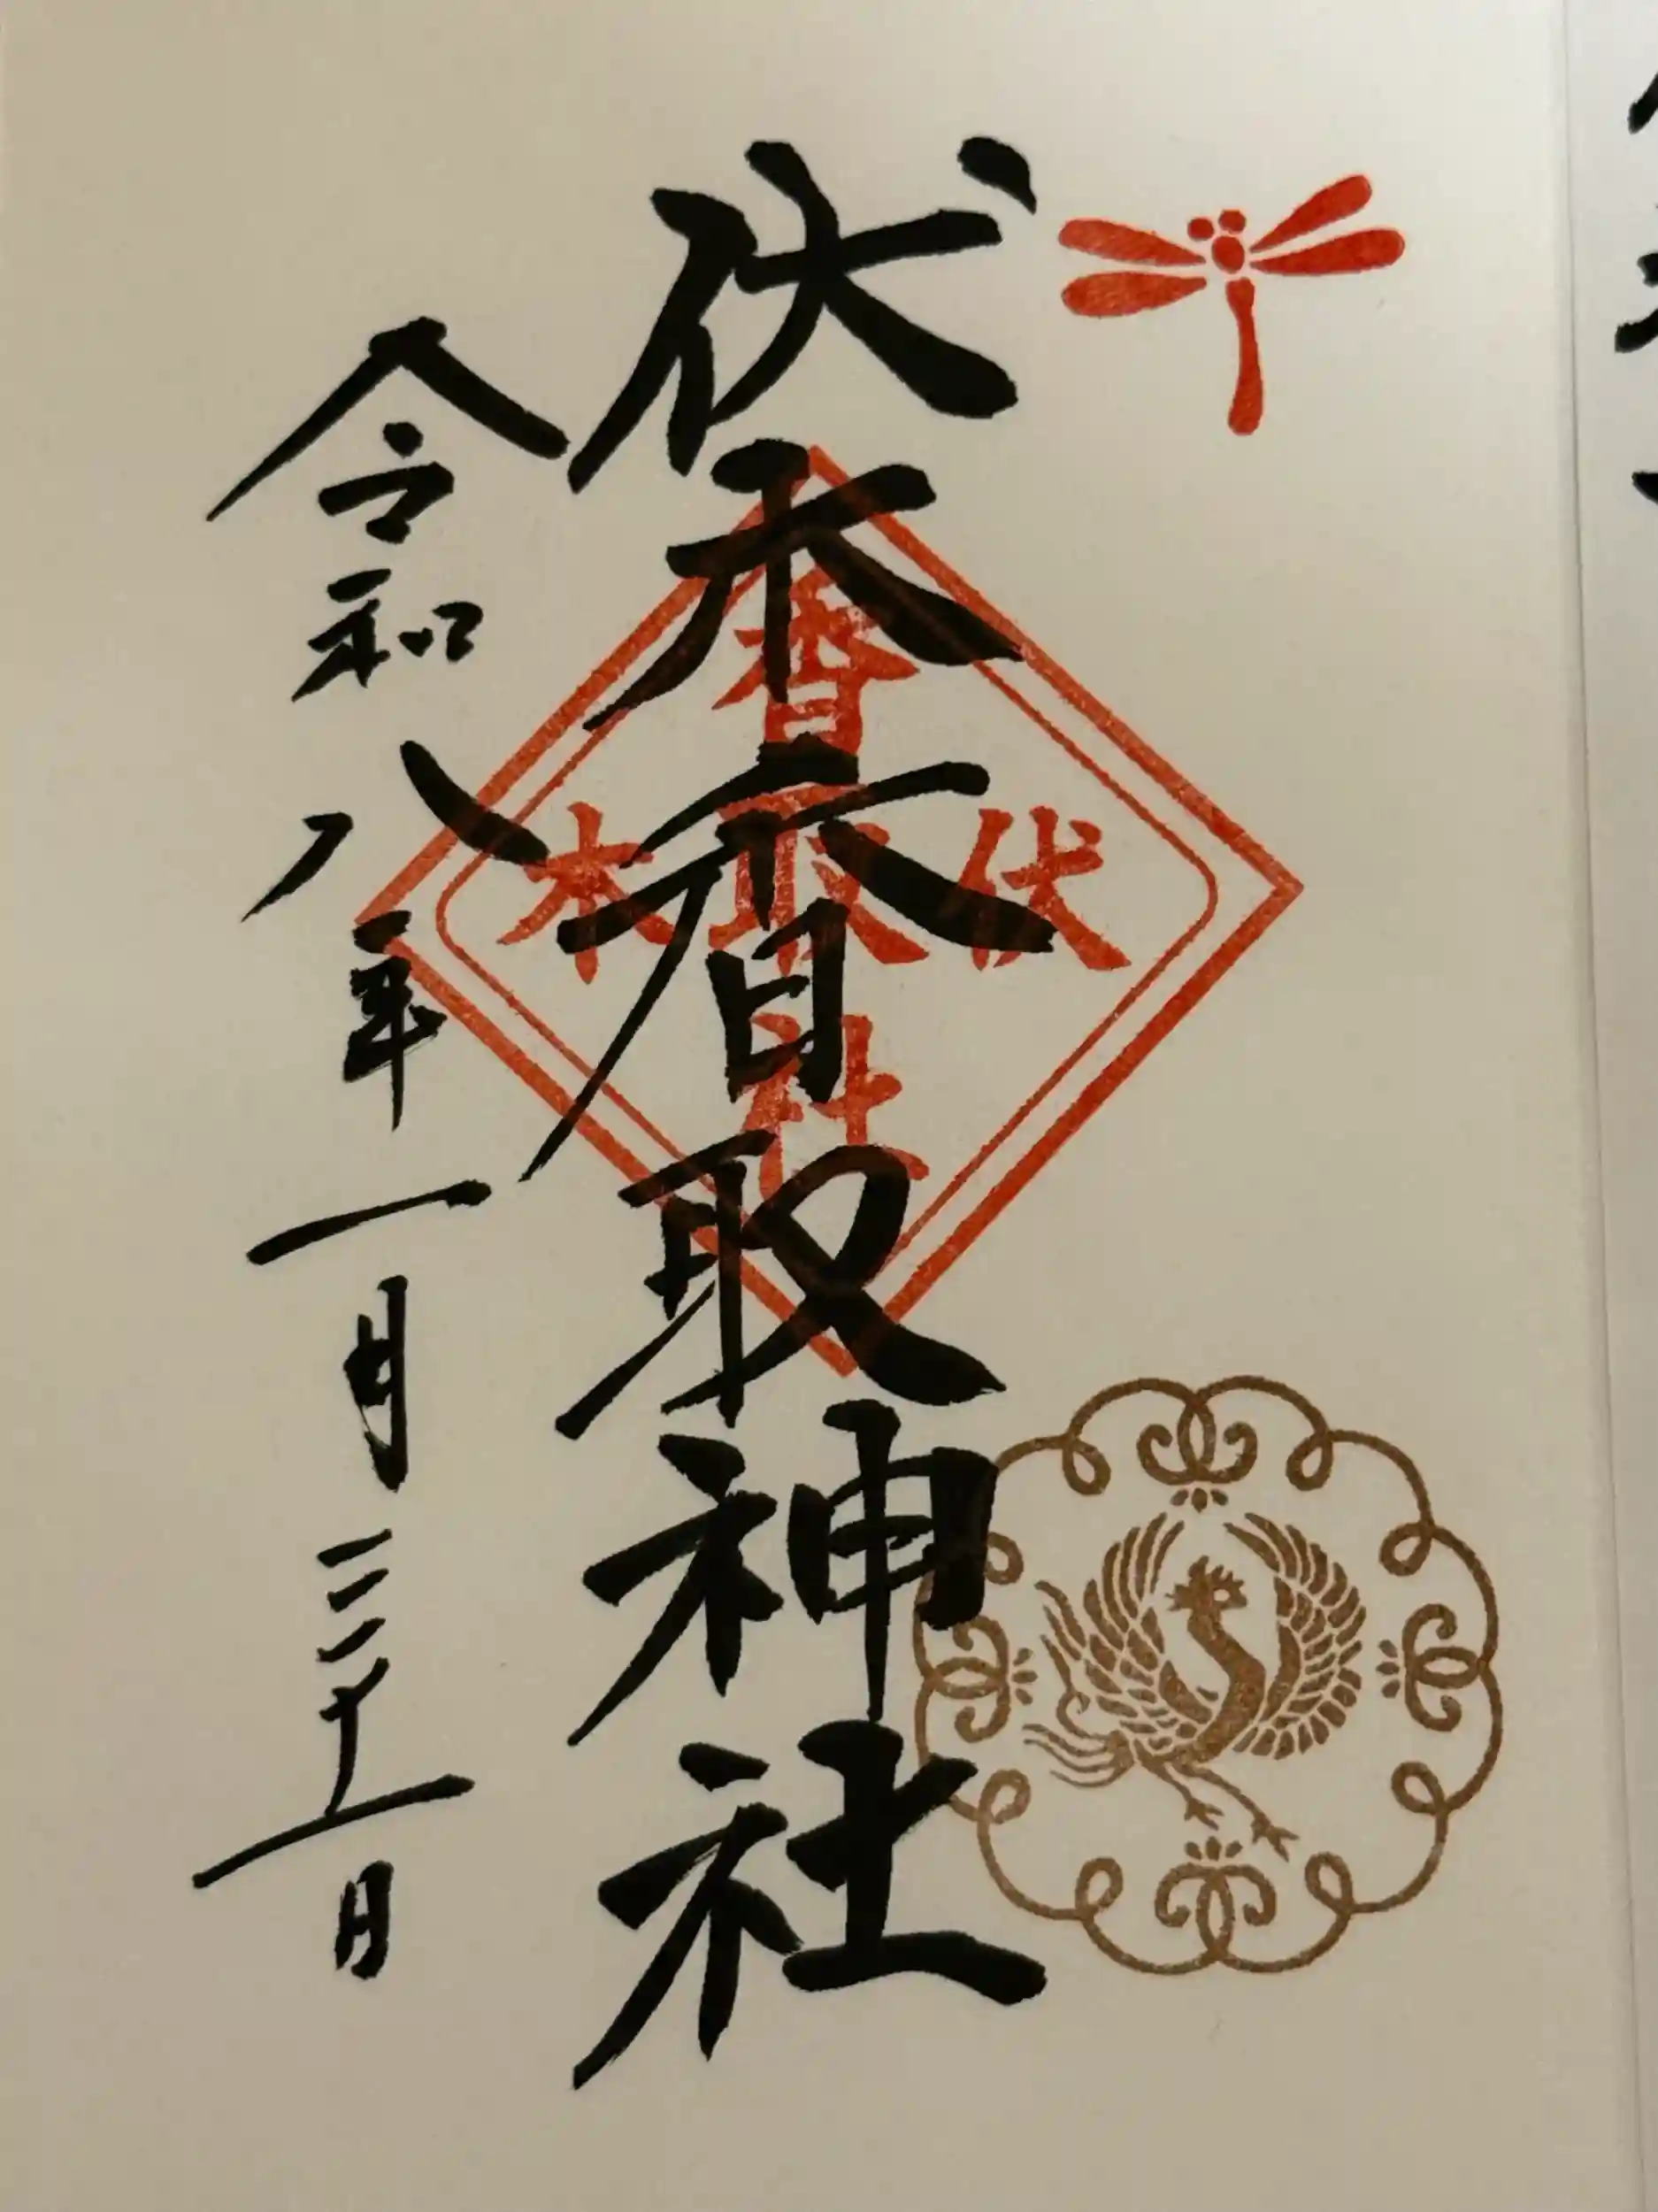 伏木香取神社
香
伏取木
社
令和八年一月三十一日